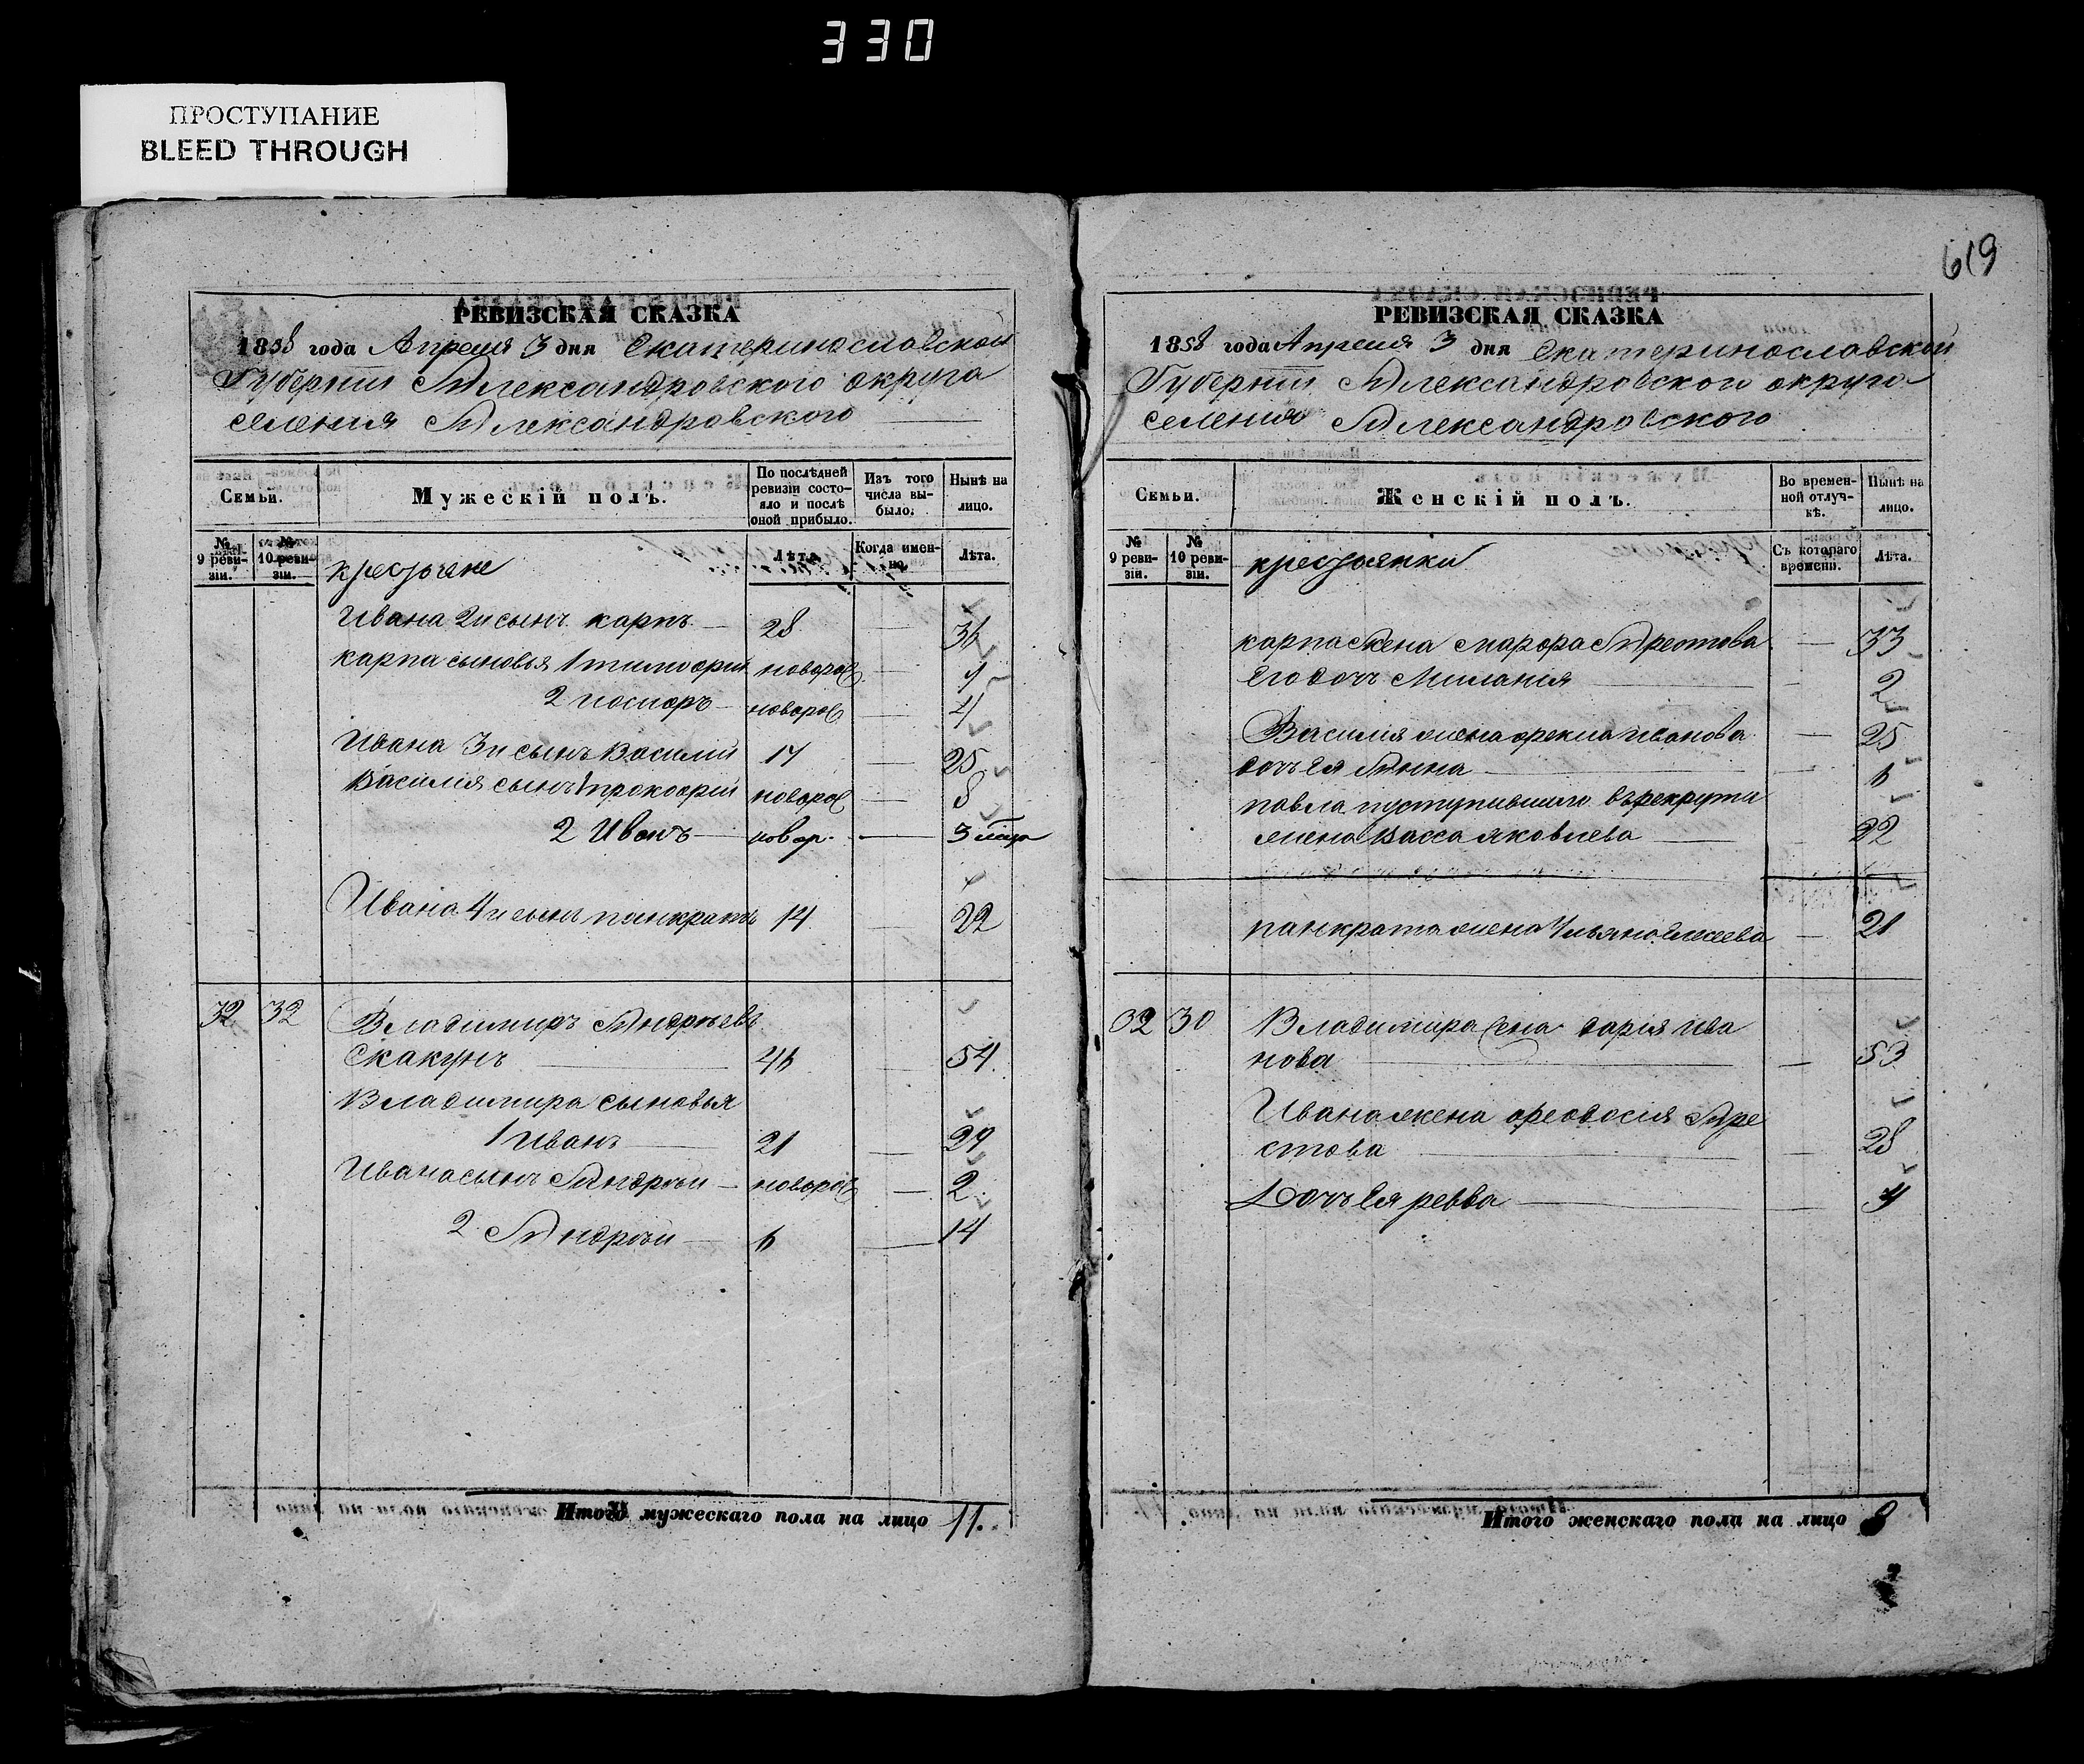 330
ПРОСТУПАНИЕ
BLEED THROUGH
РЕВИЗСКАЯ СКАЗКА
1858 года Апреля 3 дня Екатеринославской
Губерніи Александровского округа
селения Александровского
Семьи.
Мужескій полъ.
По послѣдней ревизіи состояло и послѣ оной прибыло.
Изъ того числа выбыло.
Нынѣ на лицо.
№ 9 ревизіи.
№ 10 ревизіи.
крестьяне
Лѣта.
Когда именно.
Лѣта.
Ивана 2й сынъ карпъ 28 36
карпа сыновья 1 тимофей новорож
2 новорож 4
Ивана 3й сынъ Василий 17 25
Василия сынъ 1 прокофий новорож 8
2 Иванъ новор. 3
Ивана 4й сынъ панкратъ 14 22
32 32 Владимиръ Андрѣевъ
Скакунъ 46 54
Владимира сыновья
1 Иванъ 21 29
Ивана сынъ Андрѣй новорож 2
2 Андрѣй 6 14
Итого мужескаго пола на лицо 11.
619
РЕВИЗСКАЯ СКАЗКА
1858 года Апреля 3 дня Екатеринославской
Губерніи Александровского округа
селения Александровского
Семьи.
Женскій полъ.
Во временной отлучкѣ.
Нынѣ на лицо.
№ 9 ревизіи.
№ 10 ревизіи.
крестьянки
Съ котораго времени.
Лѣта.
карпа жена марфа Арестова 33
Его дочь Миланія 2
Василія жена фекла иванова 25
дочь Ея Анна 6
павла пуступившого върекруты
жена Васса яковлева 22
панкрата жена Ульяна Елесеева 21
32 30 Владимира жена дария ива
нова 53
Ивана жена феодосия Аре
стова 28
Дочь Ея 4
Итого женскаго пола на лицо